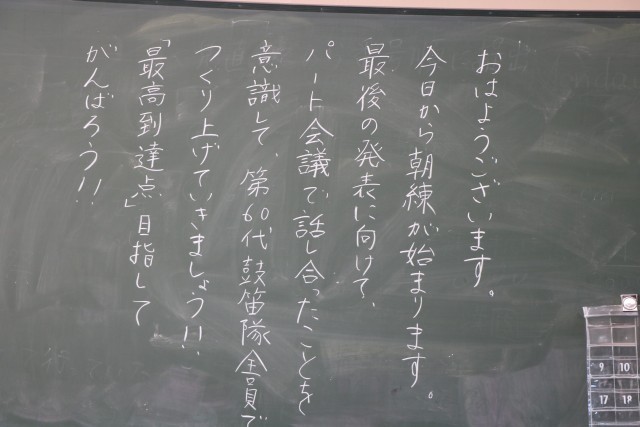 おはようございます。
今日から朝練が始まります。
最後の発表に向けて、
パート会議で話し合ったことを
意識して、第60代鼓笛隊全員で
つくり上げていきましょう!!
「最高到達点」目指して
がんばろう!!
9 10
17 18